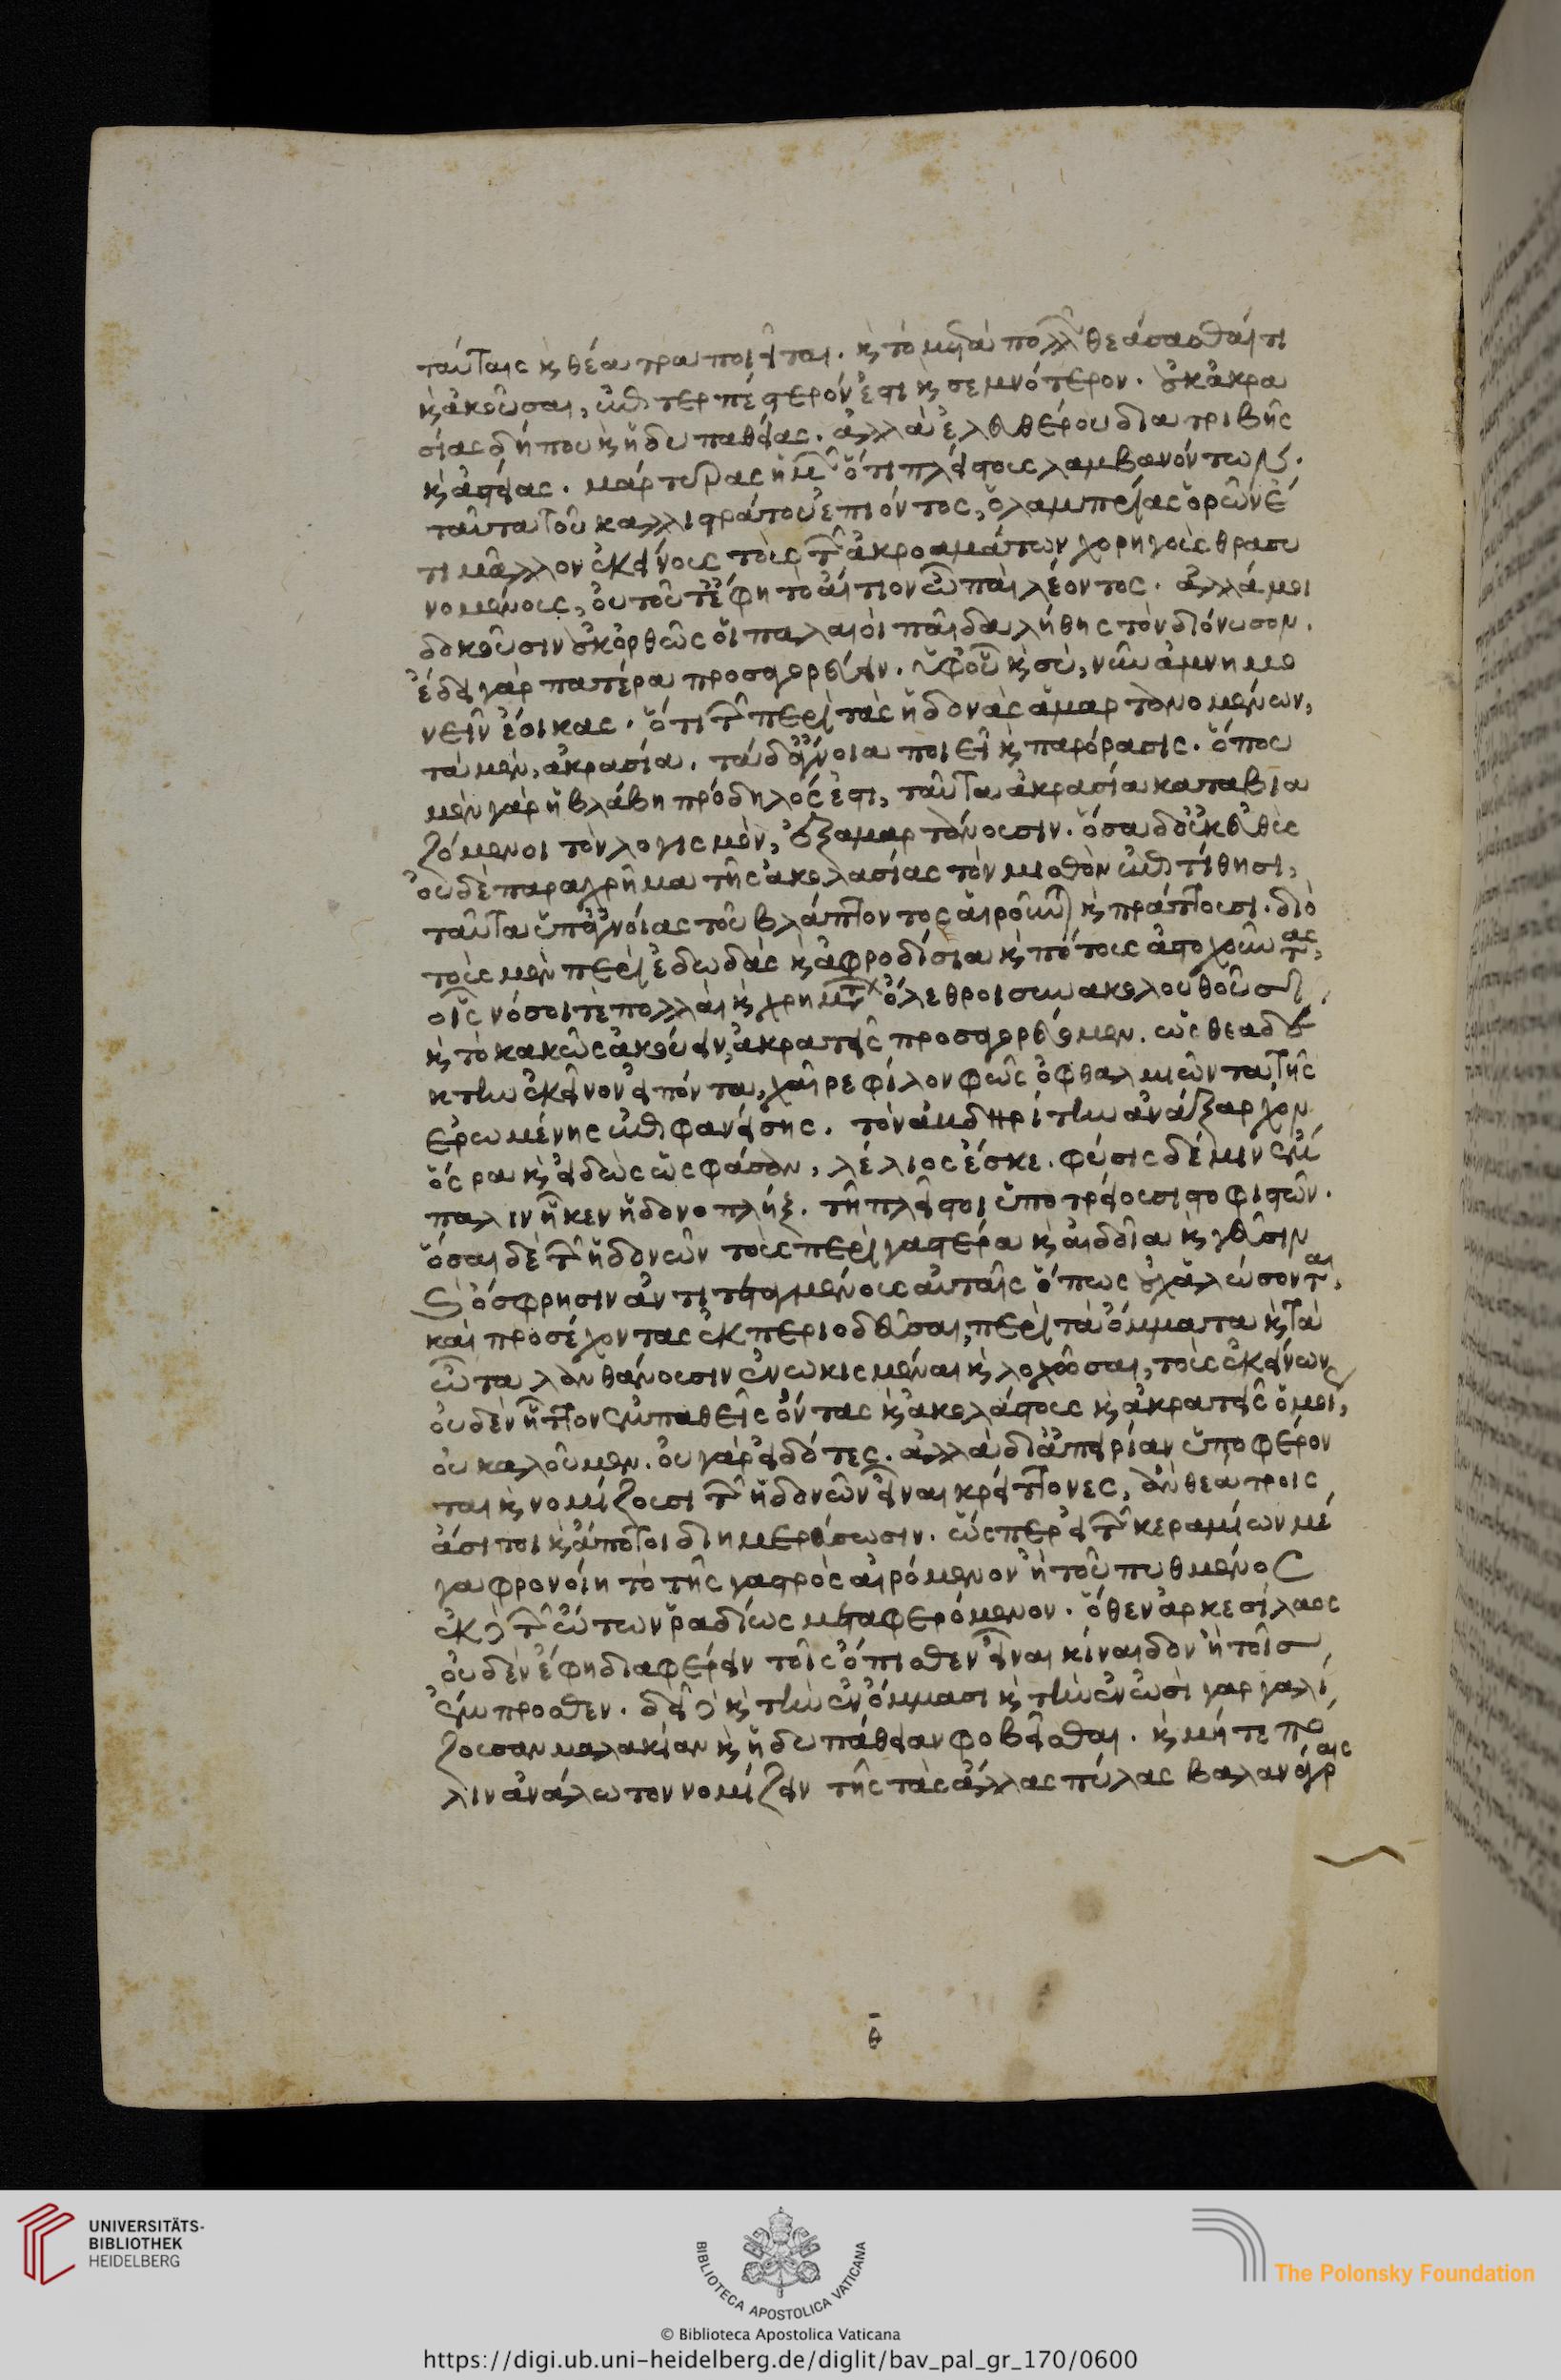 ταύταις κ̀ θέατρα ποιεῖται. κ̀ τὸ μετὰ πολλῶν θεάσασθαί τι
κ̀ ἀκοῦσαι, ἐπιτερπέστερόν ἐστι κ̀ σεμνότερον. οὐκ ἀκρα
σίας δήπου κ̀ ἡδυπαθείας. ἀλλὰ ἐλευθέρου διατριβῆς
κ̀ ἀστείας. μάρτυρας ἡμῶν ὅτι πλείστους λαμβανόντων.
ταῦτα τοῦ καλλιστράτου εἰπόντος, ὁ λαμπρίας ὁρῶν ἔ
τι μᾶλλον ἐκείνους τοὺς τῶν ἀκροαμάτων χορηγοὺς θρασυ
νομένους, οὐ τοῦτ ἔφη τὸ αἴτιον ὦ παῖ λέοντος. ἀλλά μοι
δοκοῦσιν οὐκ ὀρθῶς οἱ παλαιοὶ παῖδα λήθης τὸν διόνυσον.
ἔδει γὰρ πατέρα προσαγορεύειν. ὑφ οὗ κ̀ σὺ, νῦν ἀμνημο
νεῖν ἔοικας. ὅτι τῶν περὶ τὰς ἡδονὰς ἁμαρτανομένων,
τὰ μὲν, ἀκρασία. τὰ δ ἄγνοια ποιεῖ κ̀ παρόρασις. ὅπου
μὲν γὰρ ἡ βλάβη πρόδηλός ἐστι, ταῦτα ἀκρασία καταβια
ζόμενοι τὸν λογισμὸν, ἐξαμαρτάνουσιν. ὅσα δ οὐκ εὐθὺς
οὐδὲ παραχρῆμα τῆς ἀκολασίας τὸν μισθὸν ἐπιτίθησι,
ταῦτα ὑπ ἀγνοίας τοῦ βλάπτοντος αἱροῦνται κ̀ πράττουσι. διὸ
τοὺς μὲν περὶ ἐδωδὰς κ̀ ἀφροδίσια κ̀ πότους ἀστοχοῦντας,
οἷς νόσοι τὲ πολλαὶ κ̀ χρημάτων ὄλεθροι συνακολουθοῦσι,
κ̀ τὸ κακῶς ἀκούειν, ἀκρατεῖς προσαγορεύομεν. ὡς θεοδέ
κτην ἐκεῖνον εἰπόντα, χαῖρε φίλον φῶς ὀφθαλμιῶντα τῆς
ἐρωμένης ἐπιφανείσης. τὸν ἀβδηρίτην ἀνάξαρχον
ὅς ρα κ̀ εἰδὼς ὡς φάσαν, λέλιος ἔσκε. φύσις δέ μιν ἔμ
παλιν ἦκεν ἡδονοπλήξ. τῆ πλεῖστοι ὑποτρείουσι σοφιστῶν.
ὅσαι δὲ τῶν ἡδονῶν τοὺς περὶ γαστέρα κ̀ αἰδοῖα κ̀ γεῦσιν
κ̀ ὄσφρησιν ἀντιτεταγμένους αὐταῖς ὅπως οὐχ ἁλώσονται,
καὶ προσέχοντας ἐκπεριοδεῦσαι, περὶ τὰ ὄμματα κ̀ τὰ
ὦτα λανθάνουσιν ἐνῳκισμέναι κ̀ λοχῶσαι, τοὺς ἐκείνων
οὐδὲν ἧττον ἐμπαθεῖς ὄντας κ̀ ἀκολάστους κ̀ ἀκρατεῖς ὁμοί,
οὐ καλοῦμεν. οὐ γὰρ εἰδότες. ἀλλὰ δι ἀπειρίαν ὑποφέρον
ται κ̀ νομίζουσι τῶν ἡδονῶν εἶναι κρείττονες, ἂν θεάτροις
ἄσιτοι κ̀ ἄποτοι διημερεύσωσιν. ὥσπερ εἰ τῶν κεραμίων μέ
γα φρονοίη τὸ τῆς γαστρὸς αἰρόμενον ἢ τοῦ πυθμένος
ἐκ δὲ τῶν ὤτων ῥαδίως μεταφερόμενον. ὅθεν ἀρκεσίλαος
οὐδὲν ἔφη διαφέρειν τοῖς ὄπισθεν εἶναι κίναιδον ἢ τοῖς
ἔμπροσθεν. δεῖ δὲ κ̀ τὴν ἐν ὄμμασι κ̀ τὴν ἐν ὠσὶ γαργαλί
ζουσαν μαλακίαν κ̀ ἡδυπάθειαν φοβεῖσθαι. κ̀ μήτε πό
λιν ἀνάλωτον νομίζειν τῆς τὰς ἄλλας πύλας βαλανάγραις
θ̄
UNIVERSITÄTS-
BIBLIOTHEK
HEIDELBERG
BIBLIOTECA APOSTOLICA VATICANA
The Polonsky Foundation
© Biblioteca Apostolica Vaticana
https://digi.ub.uni-heidelberg.de/diglit/bav_pal_gr_170/0600